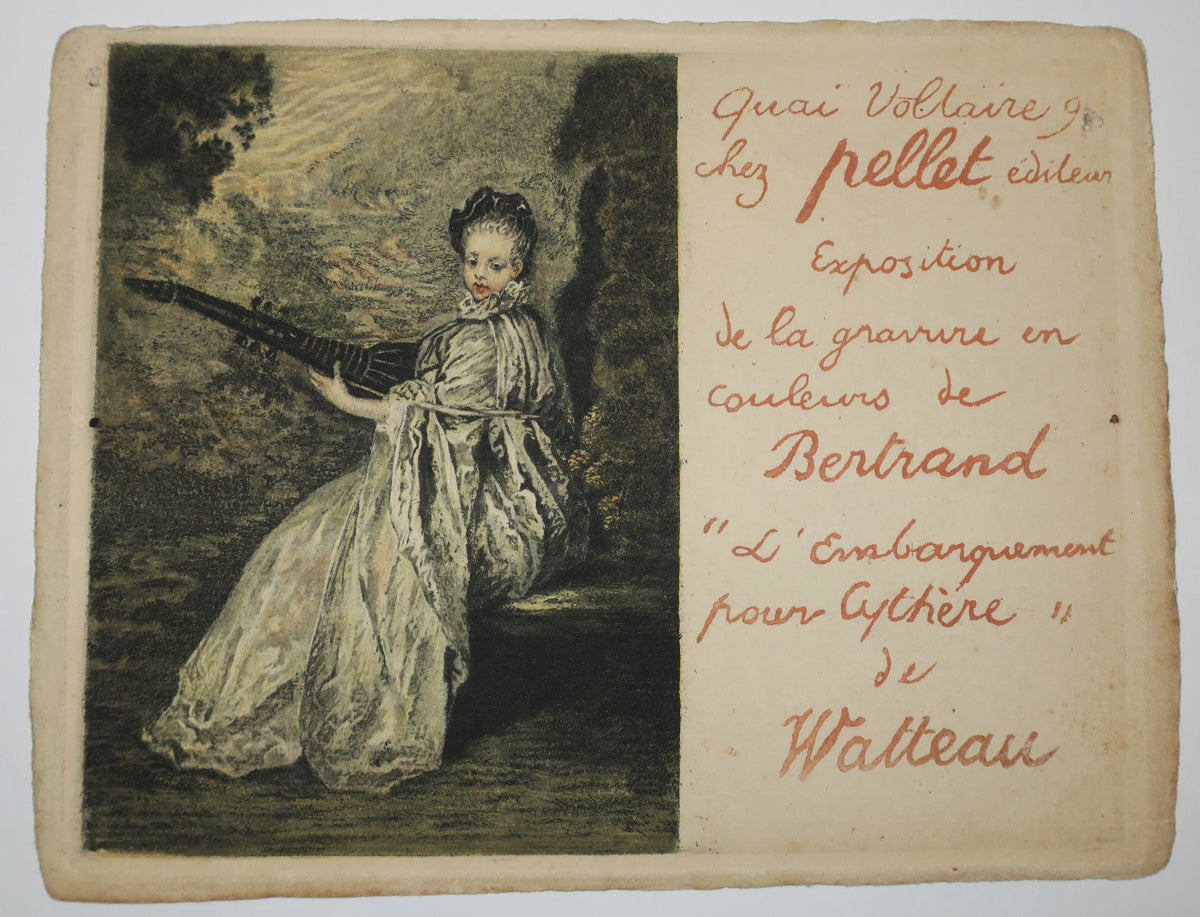 Quai Voltaire 9
chez pellet éditeur
Exposition
de la gravure en
couleurs de
Bertrand
"L'Embarquement
pour Cythère"
de
Watteau